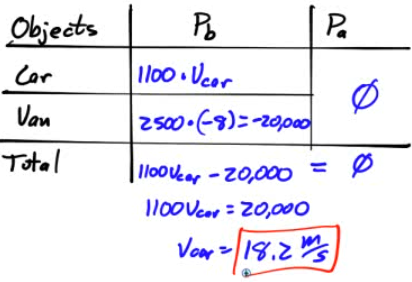 Objects P_b P_a
Car 1100 · V_car
Ø
Van 2500 · (-8) = -20,000
Total 1100 V_car - 20,000 = Ø
1100 V_car = 20,000
V_car = 18.2 m/s